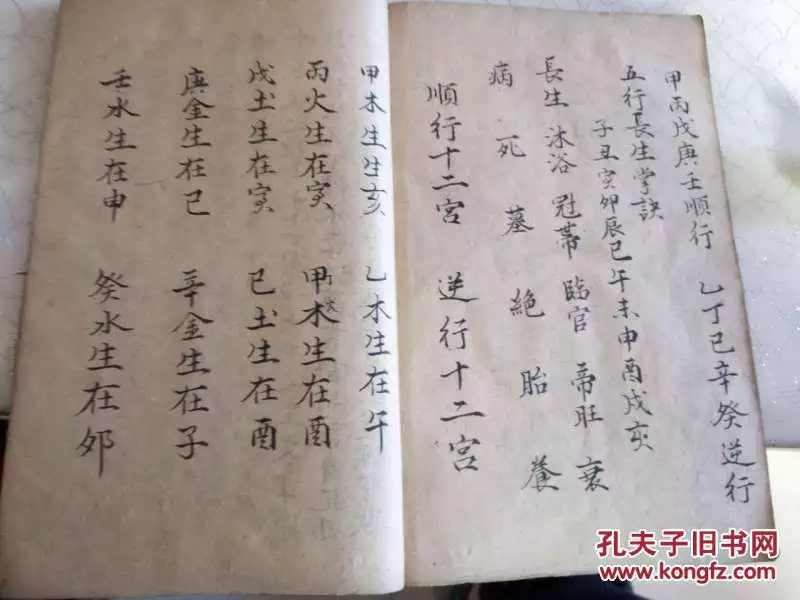 甲丙戊庚壬順行 乙丁己辛癸逆行
五行長生掌訣
子丑寅卯辰巳午未申酉戌亥
長生 沐浴 冠帶 臨官 帝旺 衰
病 死 墓 絕 胎 養
順行十二宮 逆行十二宮
甲木生生亥 乙木生在午
丙火生在寅 甲木生在酉
戊土生在寅 己土生在酉
庚金生在巳 辛金生在子
壬水生在申 癸水生在卯
孔夫子旧书网
www.kongfz.com